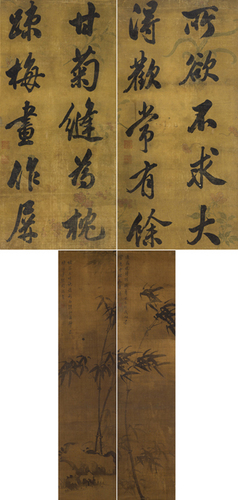 所欲不求大
得歡常有餘
甘菊縫為枕
疎梅畫作屏